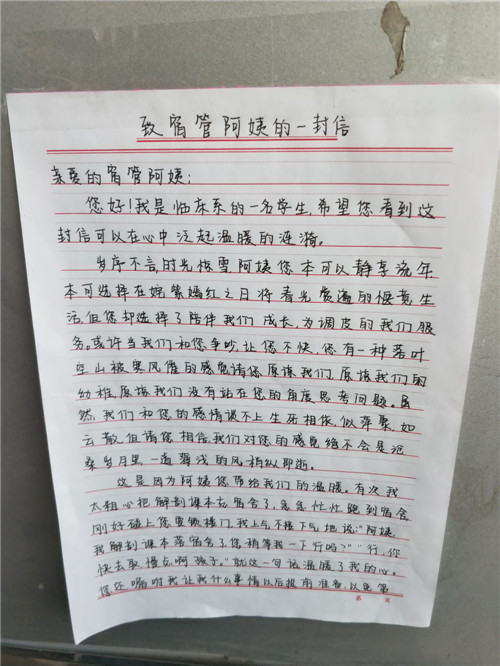 致宿管阿姨的一封信
亲爱的宿管阿姨:
您好!我是临床系的一名学生,希望您看到这
封信可以在心中泛起温暖的涟漪。
岁序不言,时光修雪阿姨您本可以静享流年
本可选择在姹紫嫣红之日将春光赏遍的惬意生
活,但您却选择了陪伴我们成长,为调皮的我们服
务。或许当我们和您争吵,让您不快,您有一种落叶
空山被寒风催的感觉请您原谅我们,原谅我们的
幼稚原谅我们没有站在您的角度思考问题。虽
然,我们和您的感情谈不上生死相依,似萍聚如
云散,但请您相信,我们对您的感觉绝不会是沧
桑岁月里一道薄浅的风稍纵即逝。
这是因为阿姨您带给我们的温暖。有次我
太粗心把解剖课本忘宿舍了,急急忙忙跑到宿舍
刚好碰上您要锁楼门,我上气不接下气地说:"阿姨,
我解剖课本落宿舍了您稍等我一下行吗?""行,你
快去取慢点啊孩子。"就这一句话温暖了我的心。
您还嘱咐我让我什么事情以后提前准备,以免第
第 页